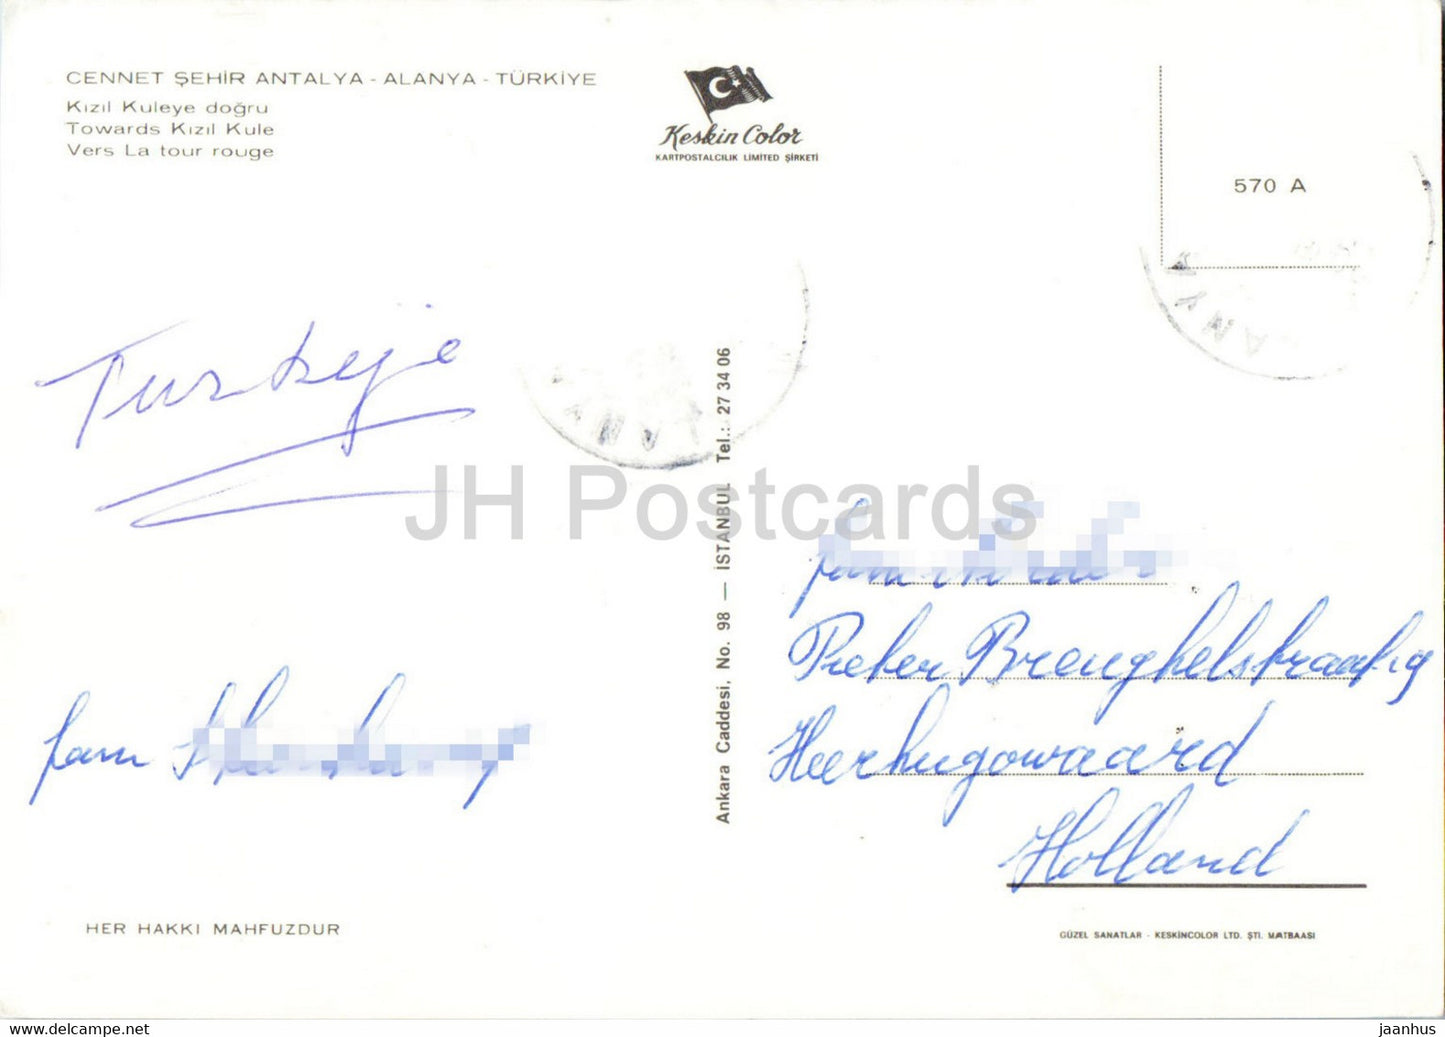 CENNET ŞEHİR ANTALYA - ALANYA - TÜRKİYE
Kızıl Kuleye doğru
Towards Kızıl Kule
Vers La tour rouge
Keskin Color
KARTPOSTALCILIK LIMITED ŞİRKETİ
570 A
ALANYA
ALANYA
Turkeije
fam
Ankara Caddesi, No. 98 — İSTANBUL Tel.: 27 34 06
fam
Pieter Breughelstraat 19
Heerhugowaard
Holland
HER HAKKI MAHFUZDUR
GÜZEL SANATLAR - KESKİNCOLOR LTD. ŞTİ. MATBAASI
JH Postcards
delcampe.net
jaanhus